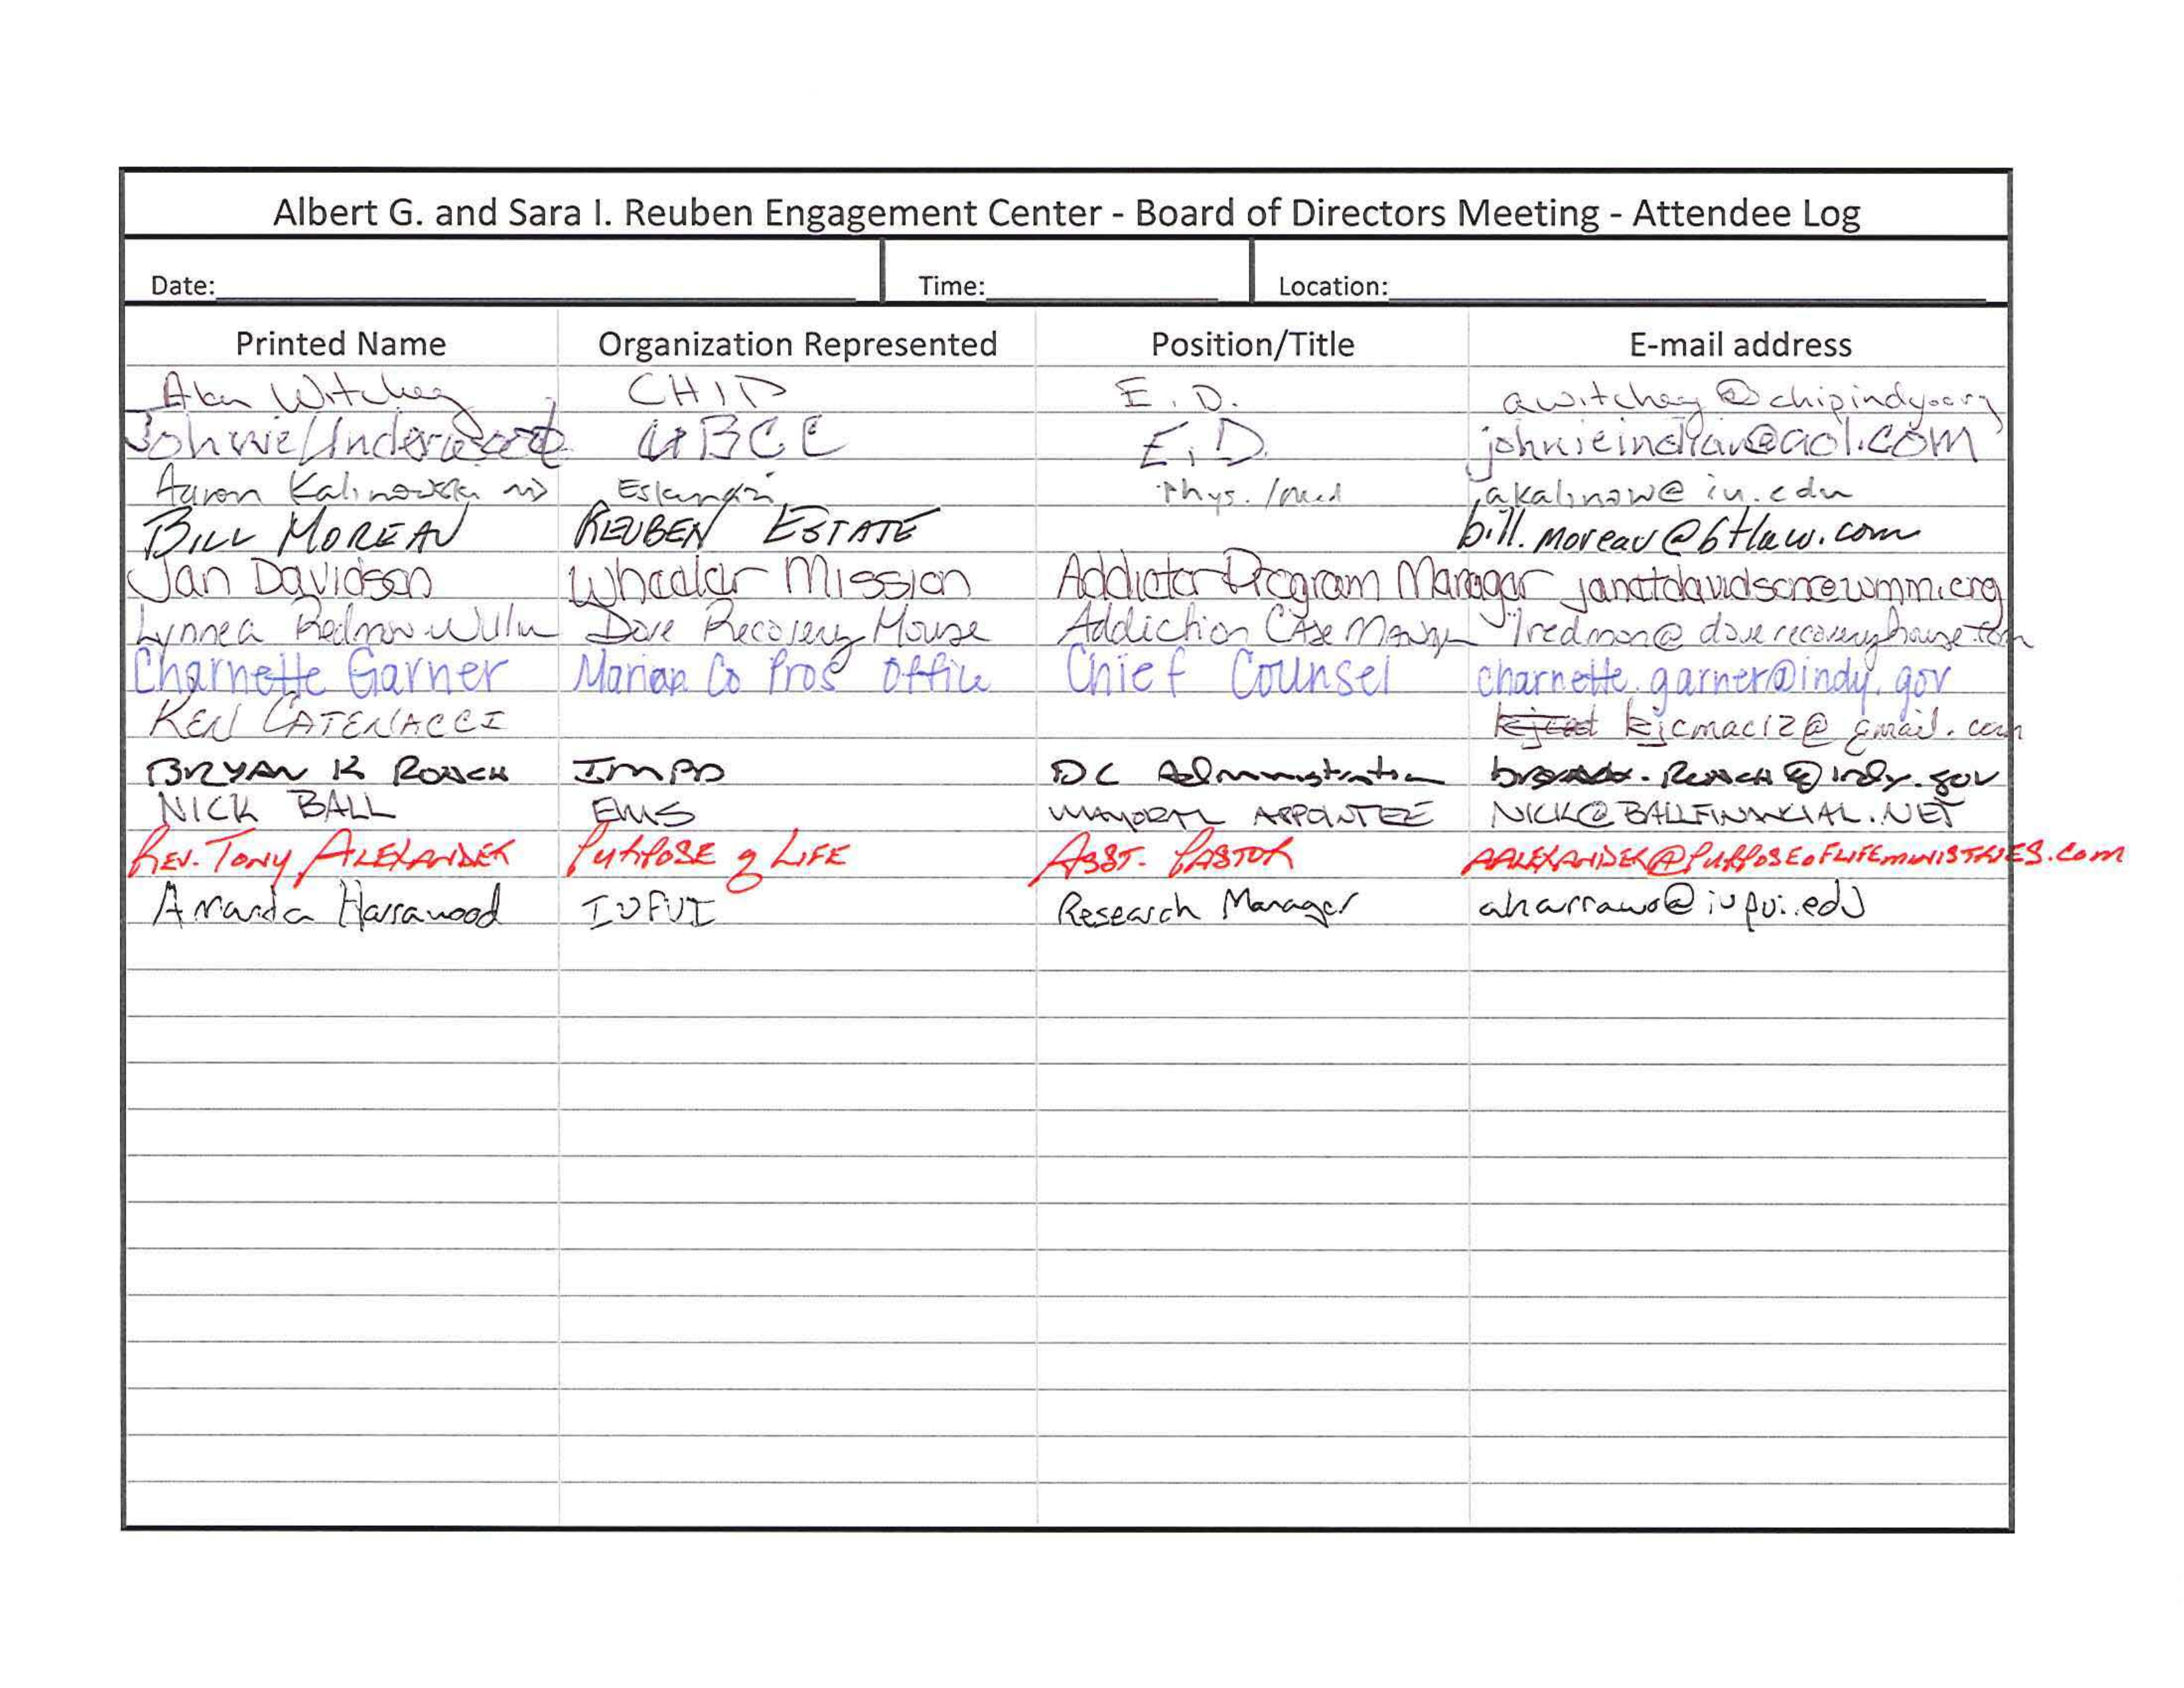 Albert G. and Sara I. Reuben Engagement Center - Board of Directors Meeting - Attendee Log
Date: Time: Location:
Printed Name Organization Represented Position/Title E-mail address
Alan Witchey CHIP E.D. awitchey@chipindy.org
Johnnie Underwood UBCC E.D. johnieindian@aol.com
Aaron Kalinowski MD Eskenazi Phys./med akalinow@iu.edu
BILL MOREAU REUBEN ESTATE bill.moreau@btlaw.com
Jan Davidson Wheeler Mission Addiction Program Manager
Lynnea Redmon Dove Recovery House Addiction Case Manager lredmon@doverecoveryhouse.com
Charnette Garner Marion Co Pros Office Chief Counsel charnette.garner@indy.gov
KEN CATENACCI kjcmac12@gmail.com
BRYAN K ROACH IMPD DC Administration
NICK BALL EMS MAYORAL APPOINTEE NICK@BALLFINANCIAL.NET
REV. TONY ALEXANDER PURPOSE of LIFE ASST. PASTOR AALEXANDER@PURPOSEOFLIFEMINISTRIES.com
Amanda Harrawood IUPUI Research Manager aharrawo@iupui.edu